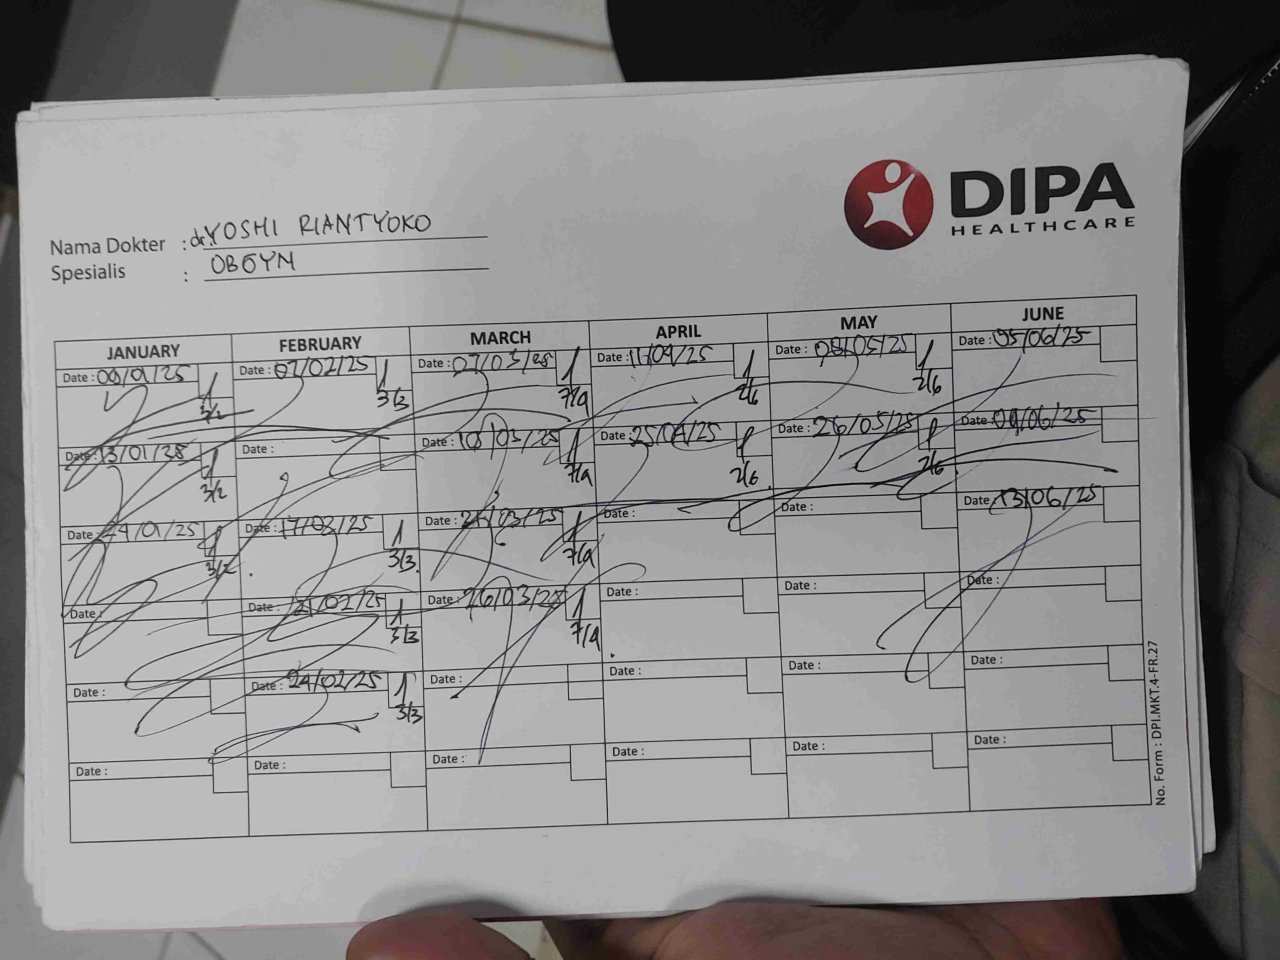 DIPA
HEALTHCARE
Nama Dokter : dr. YOSHI RIANTYOKO
Spesialis : OBGYN
JANUARY FEBRUARY MARCH APRIL MAY JUNE
Date : 09/01/25 3/2 Date : 07/02/25 3/3 Date : 07/03/25 7/4 Date : 11/04/25 2/6 Date : 08/05/25 2/6 Date : 05/06/25
Date : 13/01/25 3/2 Date : Date : 10/03/25 7/4 Date : 25/04/25 2/6 Date : 26/05/25 2/6 Date : 09/06/25
Date : 24/01/25 3/2 Date : 17/02/25 3/3 Date : 21/03/25 7/4 Date : Date : Date : 13/06/25
Date : Date : 21/02/25 3/3 Date : 26/03/25 7/4 Date : Date : Date :
Date : Date : 24/02/25 3/3 Date : Date : Date : Date :
Date : Date : Date : Date : Date : Date :
No. Form : DPI.MKT.4-FR.27